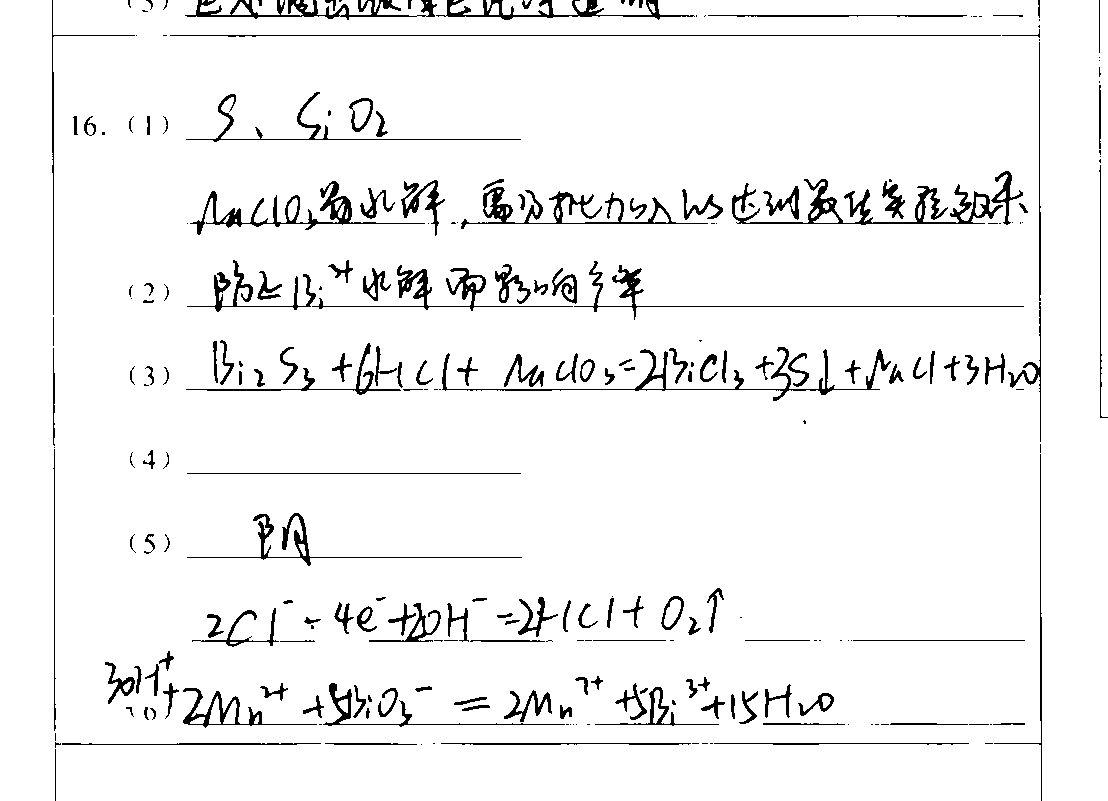 16. (1) S、SiO₂
NaClO₃易水解，需分批加入以达到最佳实验效果
(2) 防止Bi³⁺水解而影响产率
(3) Bi₂S₃+6HCl+NaClO₃=2BiCl₃+3S↓+NaCl+3H₂O
(4)
(5) 阴
2Cl⁻-4e⁻+2OH⁻=2HCl+O₂↑
30H⁺+2Mn²⁺+5BiO₃⁻=2Mn⁷⁺+5Bi³⁺+15H₂O